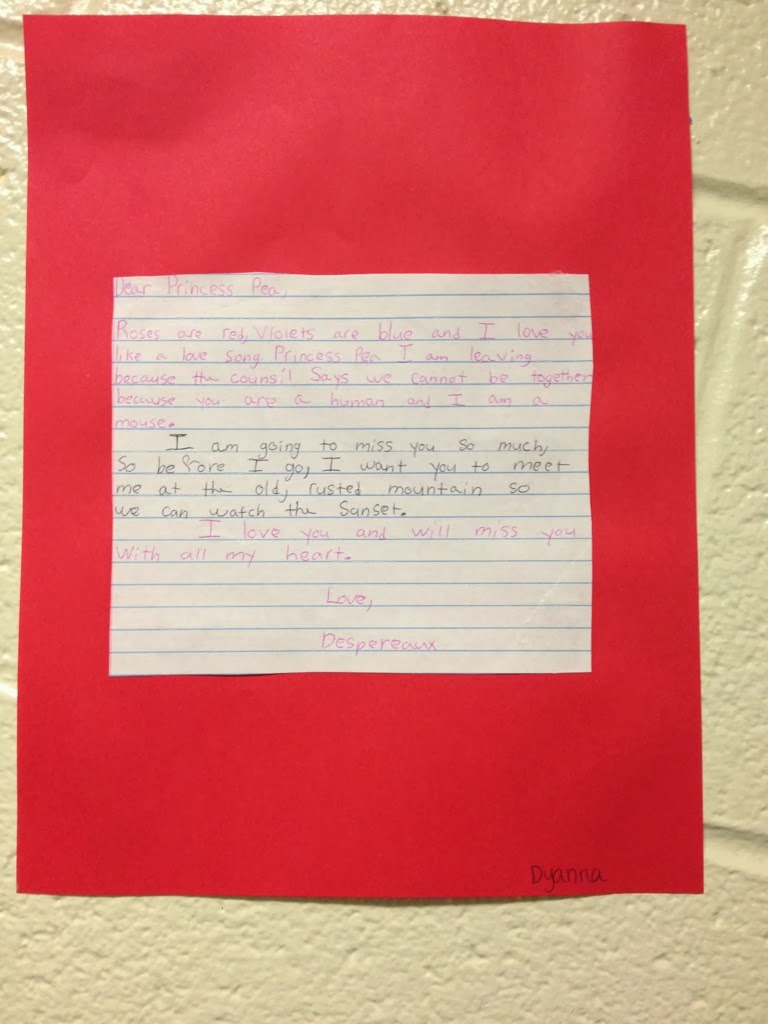 Dear Princess Pea,
Roses are red, Violets are blue and I love you
like a love song. Princess Pea I am leaving
because the counsil Says we cannot be together
because you are a human and I am a
mouse.
I am going to miss you so much,
So before I go, I want you to meet
me at the old, rusted mountain so
we can watch the Sunset.
I love you and will miss you
With all my heart.
Love,
Despereaux
Dyanna